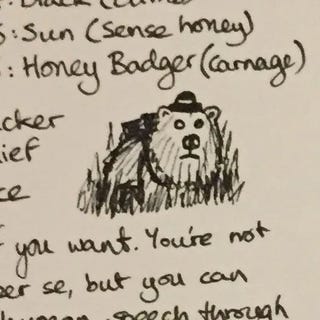 : Black (
: Sun (sense honey)
: Honey Badger (carnage)
cker
ief
ce
you want. You're not
per se, but you can
human speech through